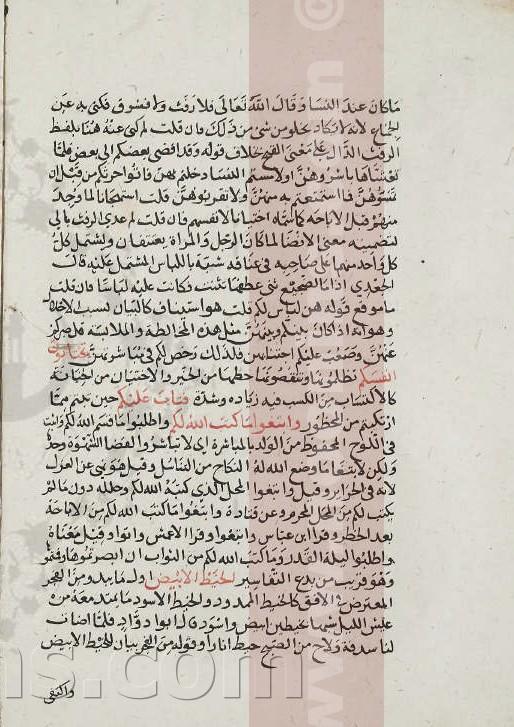 ما كان عند النسا وقال الله تعالى فلا رفث ولا فسوق فكنى به عن
الجماع لانه لا يكاد يخلو من شي من ذلك فان قلت لم كنى عنه هنا بلفظ
الرفث الدال على معنى القبح بخلاف قوله وقد افضى بعضكم الى بعض فلما
تغشاها باشروهن او لامستم النسا دخلتم بهن فاتوا حرثكم من قبل ان
تمسوهن فما استمتعتم به منهن ولا تقربوهن قلت استهجانا لما وجد
منهم قبل الاباحه كما سماه اختيانا لانفسهم فان قلت لم عدي الرفث بالى
لتضمينه معنى الافضا لما كان الرجل والمراة يعتنقان ويشتمل كل
كل واحد منهما على صاحبه في عناقه شبه باللباس المشتمل عليه قال
الجعدي اذا ما الضجيع ثنى عطفها تثنت فكانت عليه لباسا فان قلت
ما موقع قوله هن لباس لكم قلت هو استيناف كالبيان لسبب الاحلال
وهو انه اذا كان بينكم وبينهن مثل هذه المخالطة والملابسة قل صبركم
عنهن وصعب عليكم اجتنابهن فلذلك رخص لكم في مباشرتهن تختانون
انفسكم تظلمونها وتنقصونها حظها من الخير والاختيان من الخيانة
كالاكتساب من الكسب فيه زياده وشدة فتاب عليكم حين تبتم مما
ارتكبتم من المحظور وابتغوا ما كتب الله لكم واطلبوا ما قسم الله لكم واثبت
في اللوح المحفوظ من الولد بالمباشرة اي لا تباشروا لقضا الشهوة وحدها
ولكن لابتغا ما وضع الله له النكاح من التناسل وقيل هو نهي عن العزل
لانه في الحراير وقيل وابتغوا المحل الذي كتبه الله لكم وحلله دون ما لم
يكتب لكم من المحل المحرم وعن قتادة وابتغوا ما كتب الله لكم من الاباحة
بعد الحظر وقرا ابن عباس واتبعوا وقرا الاعمش واتوا وقيل معناه
واطلبوا ليلة القدر وما كتب الله لكم من الثواب ان اصبتموها وقمتموها
وهو قريب من بدع التفاسير الخيط الابيض اول ما يبدو من الفجر
المعترض في الافق كالخيط الممدود والخيط الاسود ما يمتد معه من
غبش الليل شبها بخيطين ابيض واسود قال ابو دواد فلما اضات
لنا سدفة ولاح من الصبح خيط انارا وقوله من الفجر بيان للخيط الابيض
واكتفى